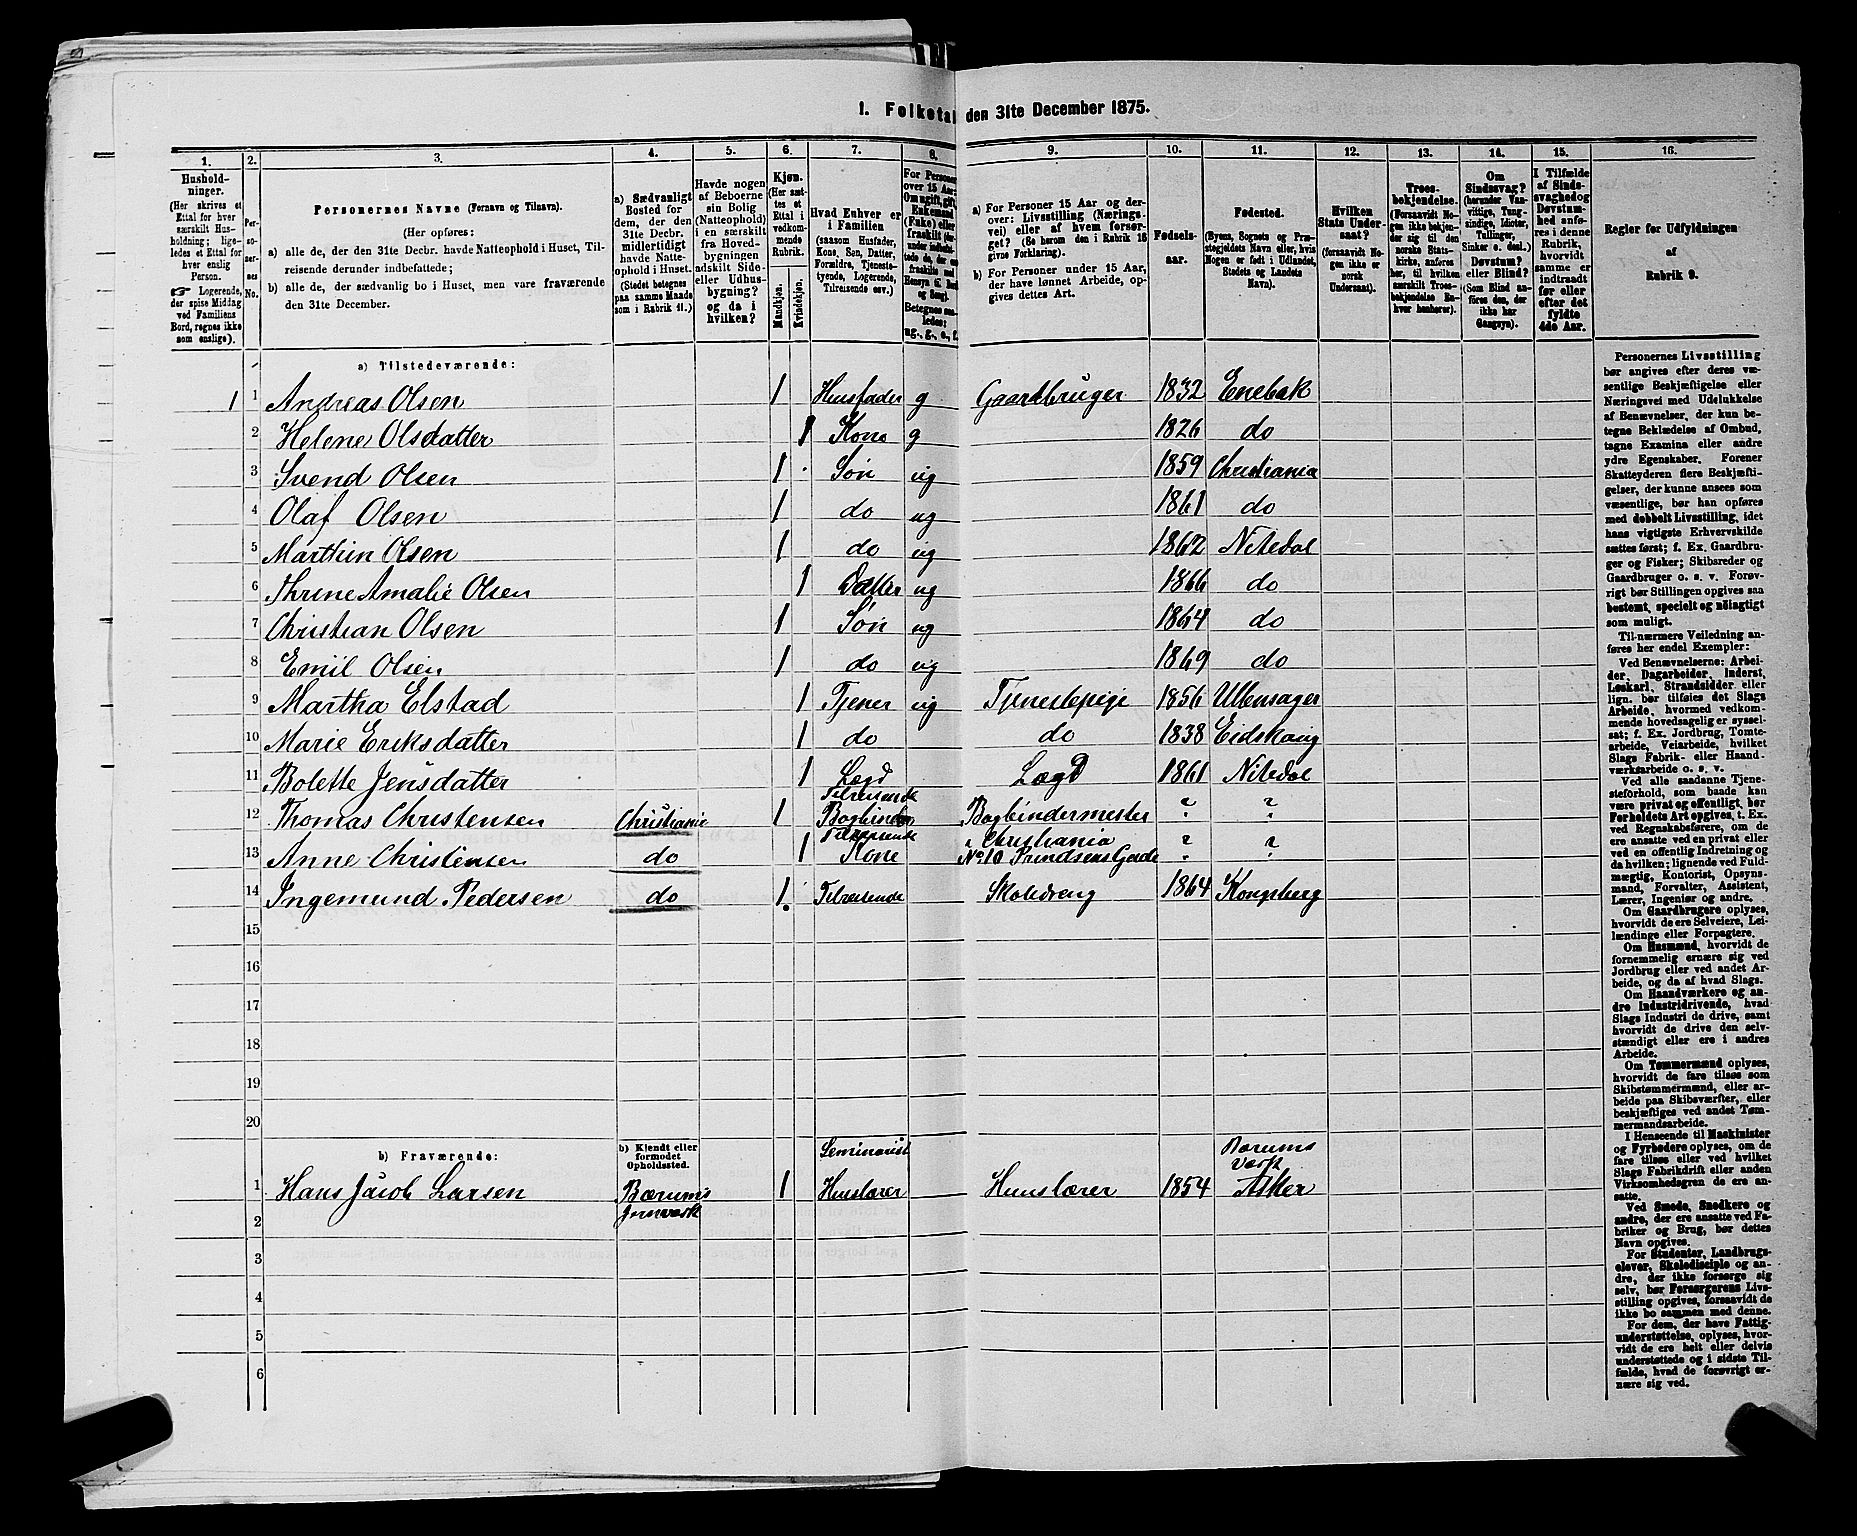 1. Folketal den 31te December 1875.
1. 2. 3. 4. 5. 6. 7. 8. 9. 10. 11. 12. 13. 14. 15. 16.
Hushold-
ninger.
(Her skrives et
Ettal for hver
særskilt Hus-
holdning; lige-
ledes et Ettal for
hver enslig
Person.
☞ Logerende,
der spise Middag
ved Familiens
Bord, regnes ikke
som enslige).
Per-
so-
ner-
nes
No.
Personernes Navne (Fornavn og Tilnavn).
(Her opføres:
a) alle de, der den 31te Decbr. havde Natteophold i Huset, Til-
reisende derunder indbefattede;
b) alle de, der sædvanlig bo i Huset, men vare fraværende
den 31te December.
a) Sædvanligt
Bosted for
dem, der den
31te Decbr.
midlertidigt
havde Natte-
ophold i Huset.
(Stedet betegnes
paa samme Maade
som i Rubrik 11.)
Havde nogen
af Beboerne
sin Bolig
(Natteophold)
i en særskilt
fra Hoved-
bygningen
adskilt Side-
eller Udhus-
bygning?
og da i
hvilken?
Kjøn.
(Her sæt-
tes et
Ettal i
vedkom-
mende
Rubrik.
Mandkjøn.
Kvindekjøn.
Hvad Enhver er
i Familien
(saasom Husfader,
Kone, Søn, Datter,
Forældre, Tjeneste-
tyende, Logerende,
Tilreisende osv.)
For Personer
over 15 Aar:
Om ugift, gift,
Enkemand
(Enke) eller
fraskilt
Betegnes saa-
ledes:
ug., g., e., f.
a) For Personer 15 Aar og der-
over: Livsstilling (Nærings-
vei) eller af hvem forsør-
get? (Se herom den i Rubrik 16
givne Forklaring).
b) For Personer under 15 Aar,
der have lønnet Arbeide, op-
gives dettes Art.
Fødsels-
aar.
Fødested.
(Byens, Sognets og Præ-
stegjeldets Navn eller, hvis
Nogen er født i Udlandet,
Stedets og Landets
Navn).
Hvilken
Stats Under-
saat?
(forsaavidt No-
gen ikke er
norsk
Undersaat).
Troes-
bekjendelse.
(Forsaavidt No-
gen ikke bekjen-
der sig til den
norske Stats-
kirke, anføres
her, til hvilken
særskilt Troes-
bekjendelse En-
hver henhører).
Om
Sindssvag?
(herunder Van-
vittige, Tung-
sindige, Idioter,
Tullinger,
Sinker o. desl.)
Døvstum?
eller Blind?
(Som Blind an-
føres den, der
ikke har
Gangsyn).
I Tilfælde
af Sinds-
svaghed og
Døvstum-
hed anfø-
res i denne
Rubrik,
hvorvidt
samme er
indtraadt
før eller
efter det
fyldte
4de Aar.
Regler for Udfyldningen
af
Rubrik 9.
a) Tilstedeværende:
1 1 Andreas Olsen 1 Husfader g Gaardbruger 1832 Enebak
2 Helene Olsdatter 1 Kone g 1826 do
3 Svend Olsen 1 Søn ug 1859 Christiania
4 Olaf Olsen 1 do ug 1861 do
5 Marthin Olsen 1 do ug 1862 Nitedal
6 Thrine Amalie Olsen 1 Datter ug 1866 do
7 Christian Olsen 1 Søn ug 1864 do
8 Emil Olsen 1 do ug 1869 do
9 Martha Elstad 1 Tjener ug Tjenestepige 1856 Ullensager
10 Marie Eriksdatter 1 do do 1838 Eidskoug
11 Bolette Jensdatter 1 Lægd Lægd 1861 Nitedal
Tilreisende
12 Thomas Christensen Christiania 1 Bogbinder Bogbindermester ? ?
Tilreisende Christiania
13 Anne Christensen do 1 Kone No 10 Prindsens Gade ? ?
14 Ingemund Pedersen do 1 Tilreisende Skoledreng 1864 Kongsberg
15
16
17
18
19
20
b) Fraværende:
b) Kjendt eller
formodet
Opholdssted.
Seminarist Bærums
Værk
1 Hans Jacob Larsen Bærums 1 Huuslærer Huuslærer 1854 Asker
Jernværk
2
3
4
5
6
Personernes Livsstilling
bør angives efter deres væ-
sentlige Beskjæftigelse eller
Næringsvei med Udelukkelse
af Benævnelser, der kun be-
tegne Beklædelse af Ombud,
tagne Examina eller andre
ydre Egenskaber. Forener
Skatteyderen flere Beskjæfti-
gelser, der kunne ansees som
væsentlige, bør han opføres
med dobbelt Livsstilling, idet
hans vigtigste Erhvervskilde
sættes først; f. Ex. Gaardbru-
ger og Fisker; Skibsreder og
Gaardbruger o. s. v. Forøv-
rigt bør Stillingen opgives saa
bestemt, specielt og nöiagtigt
som muligt.
Til nærmere Veiledning an-
føres her endel Exempler:
Ved Benævnelserne: Arbei-
der, Dagarbeider, Inderst,
Løskarl, Strandsidder eller
lign. bør tilføies det Slags
Arbeide, hvormed vedkom-
mende hovedsagelig er syssel-
sat; f. Ex. Jordbrug, Tomte-
arbeide, Veiarbeide, hvilket
Slags Fabrik- eller Haand-
værksarbeide o. s. v.
Ved alle saadanne Tjene-
steforhold, som baade kan
være privat og offentligt, bør
Forholdets Art opgives, t. Ex.
ved Regnskabsførere, om de
ere ansatte ved en privat eller
ved en offentlig Indretning og
da hvilken; lignende ved Fuld-
mægtig, Kontorist, Opsyns-
mand, Forvalter, Assistent,
Lærer, Ingeniør og andre.
Om Gaardbrugere oplyses,
hvorvidt de ere Selveiere, Lei-
lændinge eller Forpagtere.
Om Husmænd, hvorvidt de
fornemmelig ernære sig ved
Jordbrug eller ved andet Ar-
beide, og da af hvad Slags.
Om Haandværkere og an-
dre Industridrivende, hvad
Slags Industri de drive, samt
hvorvidt de drive den selv-
stændigt eller ere i andres
Arbeide.
Om Tømmermænd oplyses,
hvorvidt de fare tilsøs som
Skibstømmermænd, eller ar-
beide paa Skibsværfter, eller
beskjæftiges ved andet Tøm-
mermandsarbeide.
I Henseende til Maskinister
og Fyrbødere oplyses, om de
fare tilsøs eller ved hvilket
Slags Fabrikdrift eller anden
Virksomhedsgren de ere an-
satte.
Ved Smede, Snedkere og
andre, der ere ansatte ved Fa-
briker og Brug, bør dettes
Navn opgives.
For Studenter, Landbrugs-
elever, Skoledisciple og an-
dre, der ikke forsørge sig
selv, bør Forsørgerens Livs-
stilling opgives, forsaavidt de
ikke bo sammen med denne.
For dem, der have Fattig-
understøttelse, oplyses, hvor-
vidt de ere helt eller delvis
understøttede og i sidste Til-
fælde, hvad de forøvrigt er-
nære sig ved.